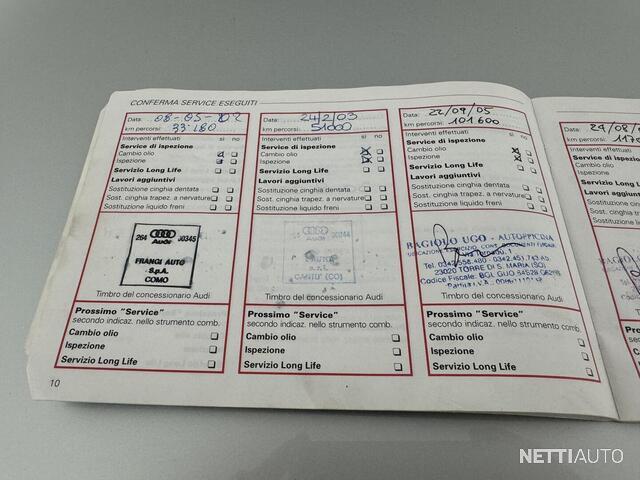 CONFERMA SERVICE ESEGUITI
Data: 08-05-102
km percorsi: 33.180
Interventi effettuati si no
Service di ispezione
Cambio olio
Ispezione
Servizio Long Life
Lavori aggiuntivi
Sostituzione cinghia dentata
Sost. cinghia trapez. a nervature
Sostituzione liquido freni
264 Audi J0345
FRANGI AUTO
S.p.A.
COMO
Timbro del concessionario Audi
Prossimo "Service"
secondo indicaz. nello strumento comb.
Cambio olio
Ispezione
Servizio Long Life
10
Data: 24/2/03
km percorsi: 51000
Interventi effettuati si no
Service di ispezione
Cambio olio
Ispezione
Servizio Long Life
Lavori aggiuntivi
Sostituzione cinghia dentata
Sost. cinghia trapez. a nervature
Sostituzione liquido freni
Audi
CANTU' (CO)
Timbro del concessionario Audi
Prossimo "Service"
secondo indicaz. nello strumento comb.
Cambio olio
Ispezione
Servizio Long Life
Data: 22/09/05
km percorsi: 101600
Interventi effettuati si no
Service di ispezione
Cambio olio
Ispezione
Servizio Long Life
Lavori aggiuntivi
Sostituzione cinghia dentata
Sost. cinghia trapez. a nervature
Sostituzione liquido freni
BAGIOLO UGO - AUTOFFICINA
23020 TORRE DI S. MARIA (SO)
Timbro del concessionario Audi
Prossimo "Service"
secondo indicaz. nello strumento comb.
Cambio olio
Ispezione
Servizio Long Life
Data:
km percorsi:
Interventi effettuati
Service di ispezione
Cambio olio
Ispezione
Servizio Long
Lavori aggiuntivi
Sostituzione
Sost. cinghia
Sostituzione
Timbro
Prossimo
secondo
Cambio
NETTIAUTO